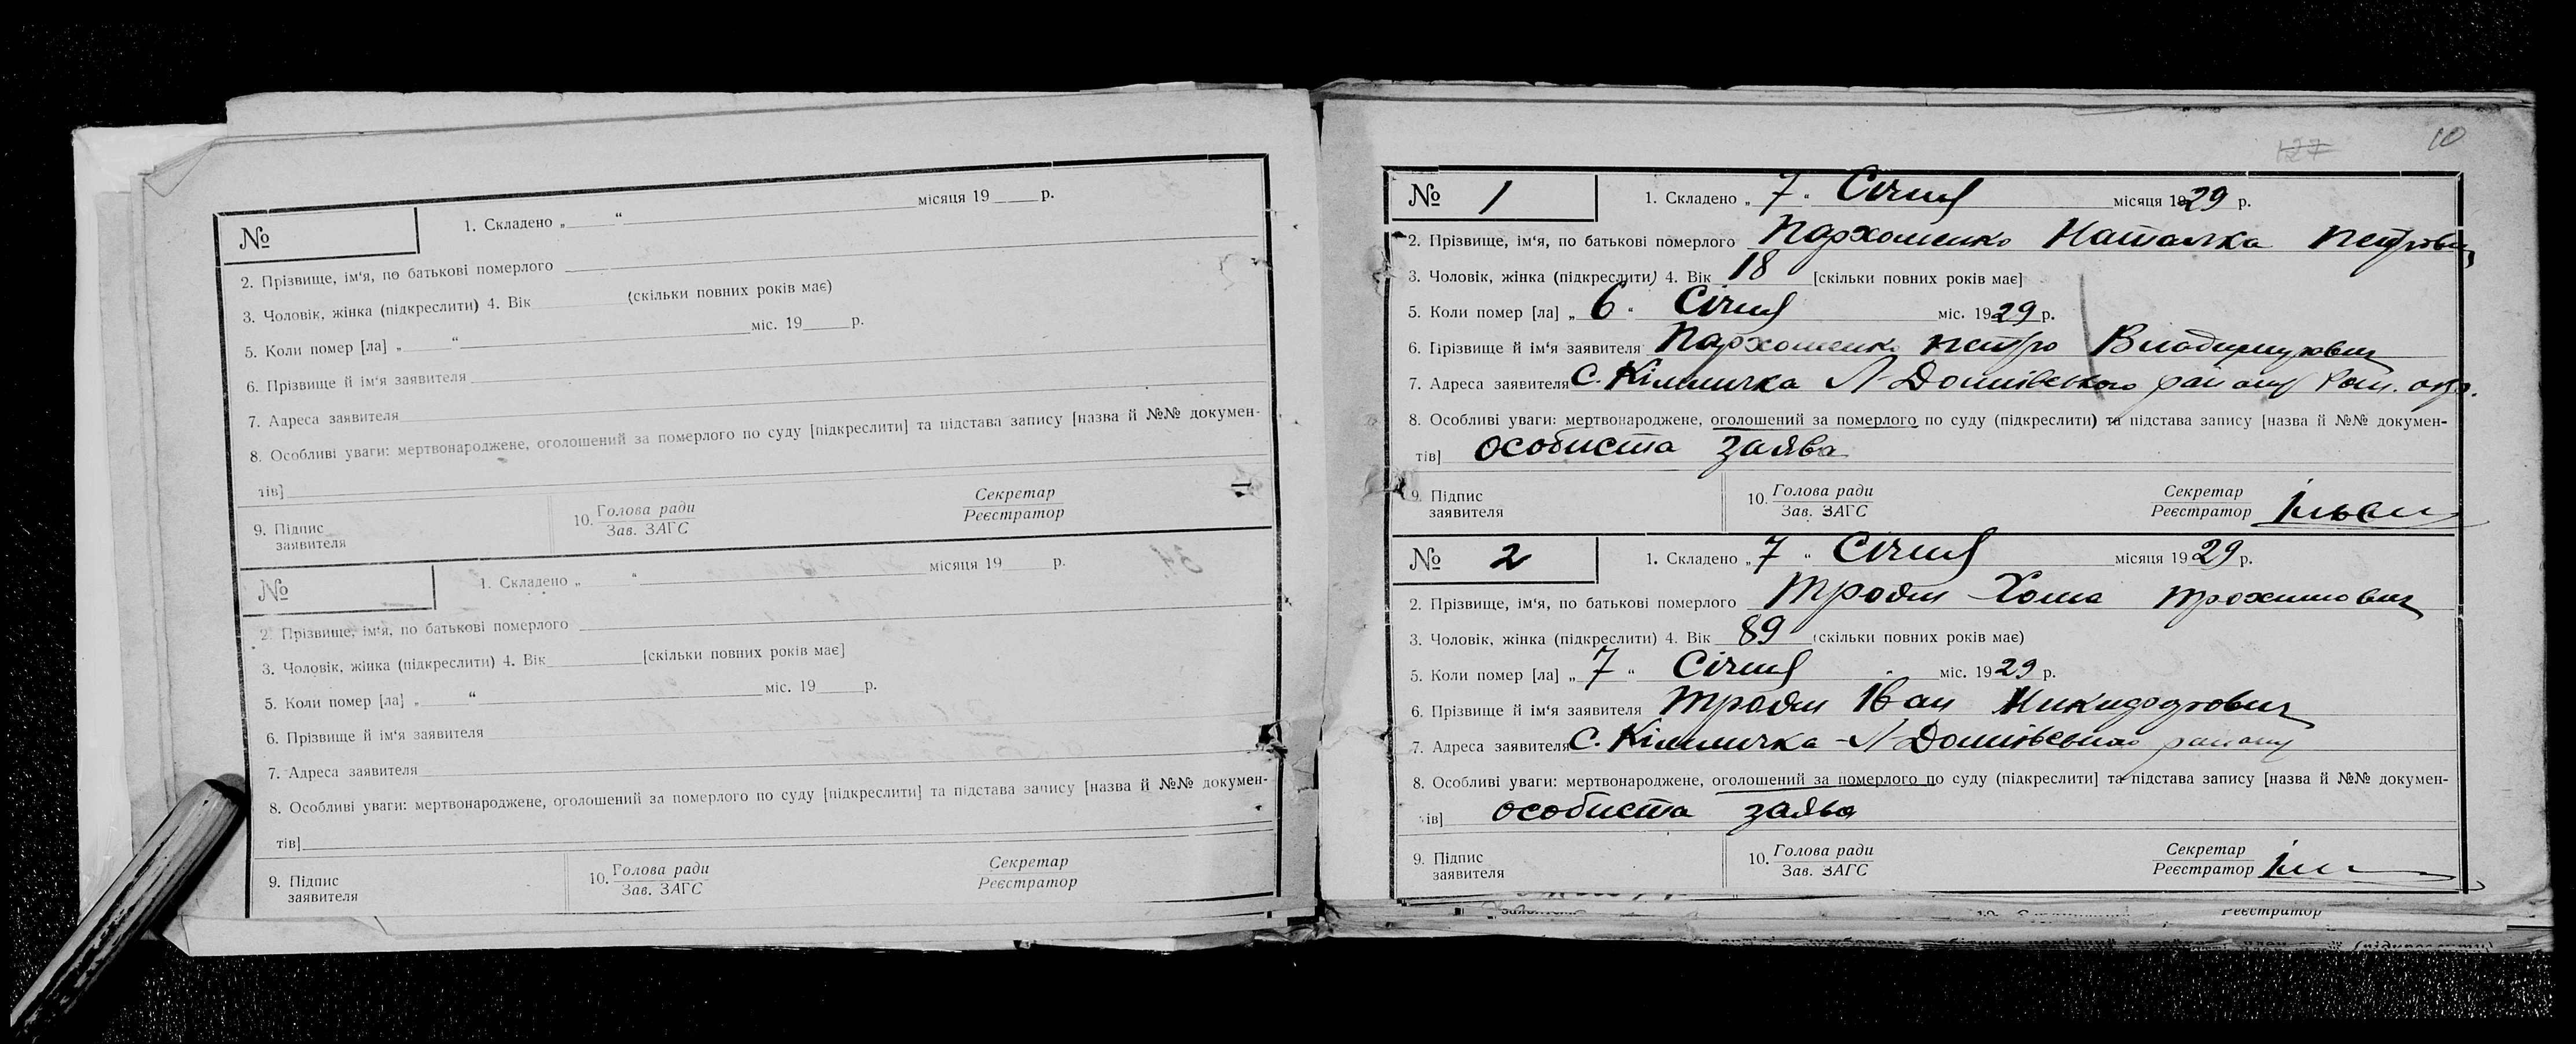 №
1. Складено „ “ місяця 19 р.
2. Прізвище, ім'я, по батькові померлого
3. Чоловік, жінка (підкреслити) 4. Вік (скільки повних років має)
5. Коли помер [ла] „ “ міс. 19 р.
6. Прізвище й ім'я заявителя
7. Адреса заявителя
8. Особливі уваги: мертвонароджене, оголошений за померлого по суду [підкреслити] та підстава запису [назва й №№ докумен-
тів]
9. Підпис заявителя 10. Голова ради Зав. ЗАГС Секретар Реєстратор
№
1. Складено „ “ місяця 19 р.
2. Прізвище, ім'я, по батькові померлого
3. Чоловік, жінка (підкреслити) 4. Вік [скільки повних років має]
5. Коли помер [ла] „ “ міс. 19 р.
6. Прізвище й ім'я заявителя
7. Адреса заявителя
8. Особливі уваги: мертвонароджене, оголошений за померлого по суду [підкреслити] та підстава запису [назва й №№ докумен-
тів]
9. Підпис заявителя 10. Голова ради Зав. ЗАГС Секретар Реєстратор
127 10
№ 1 1. Складено „7“ Січня місяця 1929 р.
2. Прізвище, ім'я, по батькові померлого Пархоменко Наталка Петровн
3. Чоловік, жінка (підкреслити) 4. Вік 18 [скільки повних років має]
5. Коли помер [ла] „6“ Січня міс. 1929 р.
6. Прізвище й ім'я заявителя Пархоменко Петро
7. Адреса заявителя с. Кілличка району Ром. окр.
8. Особливі уваги: мертвонароджене, оголошений за померлого по суду (підкреслити) та підстава запису [назва й №№ докумен-
тів] особиста заява
9. Підпис заявителя 10. Голова ради Зав. ЗАГС Секретар Реєстратор
№ 2 1. Складено „7“ Січня місяця 1929 р.
2. Прізвище, ім'я, по батькові померлого Троян Хома Трохимович
3. Чоловік, жінка (підкреслити) 4. Вік 89 (скільки повних років має)
5. Коли помер [ла] „7“ Січня міс. 1929 р.
6. Прізвище й ім'я заявителя Троян Іван
7. Адреса заявителя с. Кілличка району
8. Особливі уваги: мертвонароджене, оголошений за померлого по суду (підкреслити] та підстава запису [назва й №№ докумен-
ів] особиста заява
9. Підпис заявителя 10. Голова ради Зав. ЗАГС Секретар Реєстратор
Реєстратор